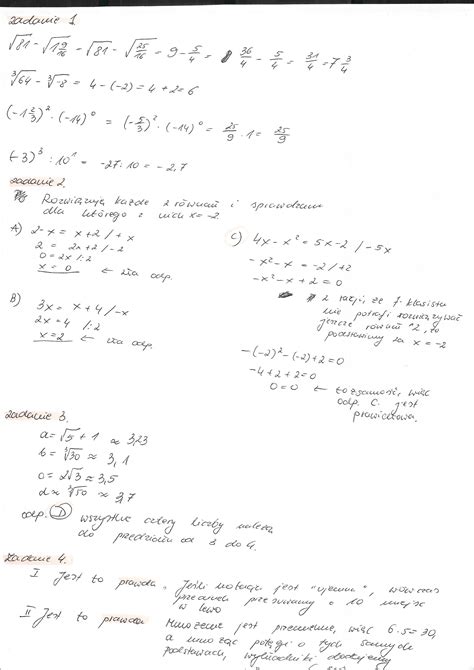 zadanie 1
√81 - √1 9/16 = √81 - √25/16 = 9 - 5/4 = 36/4 - 5/4 = 31/4 = 7 3/4
∛64 - ∛-8 = 4 - (-2) = 4 + 2 = 6
(-1 2/3)² · (-14)⁰ = (-5/3)² · (-14)⁰ = 25/9 · 1 = 25/9
(-3)³ : 10¹ = -27 : 10 = -2,7
zadanie 2.
Rozwiązuję każde z równań i sprawdzam
dla którego z nich x = -2.
A) 2-x = x+2 /+x
2 = 2x+2 /-2
0 = 2x /:2
x = 0 ← zła odp.
B) 3x = x+4 /-x
2x = 4 /:2
x = 2 ← zła odp.
C) 4x - x² = 5x - 2 /-5x
-x² - x = -2 /+2
-x² - x + 2 = 0
z racji, że 7-klasista
nie potrafi rozwiązywać
jeszcze równań ^2, to
podstawiamy za x = -2
-(-2)² - (-2) + 2 = 0
-4 + 2 + 2 = 0
0 = 0 ← tożsamość, więc
odp. C. jest
prawidłowa.
zadanie 3.
a = √5 + 1 ≈ 3,23
b = ∛30 ≈ 3,1
c = 2√3 ≈ 3,5
d = ∛50 ≈ 3,7
odp. D wszystkie cztery liczby należą
do przedziału od 3 do 4.
Zadanie 4.
I Jest to prawda. Jeśli potęga jest "ujemna", wówczas
przecinek przesuwamy o 10 miejsc
w lewo
II Jest to prawda Mnożenie jest przemienne, więc 6·5=30,
a mnożąc potęgi o tych samych
podstawach, wykładniki dodajemy